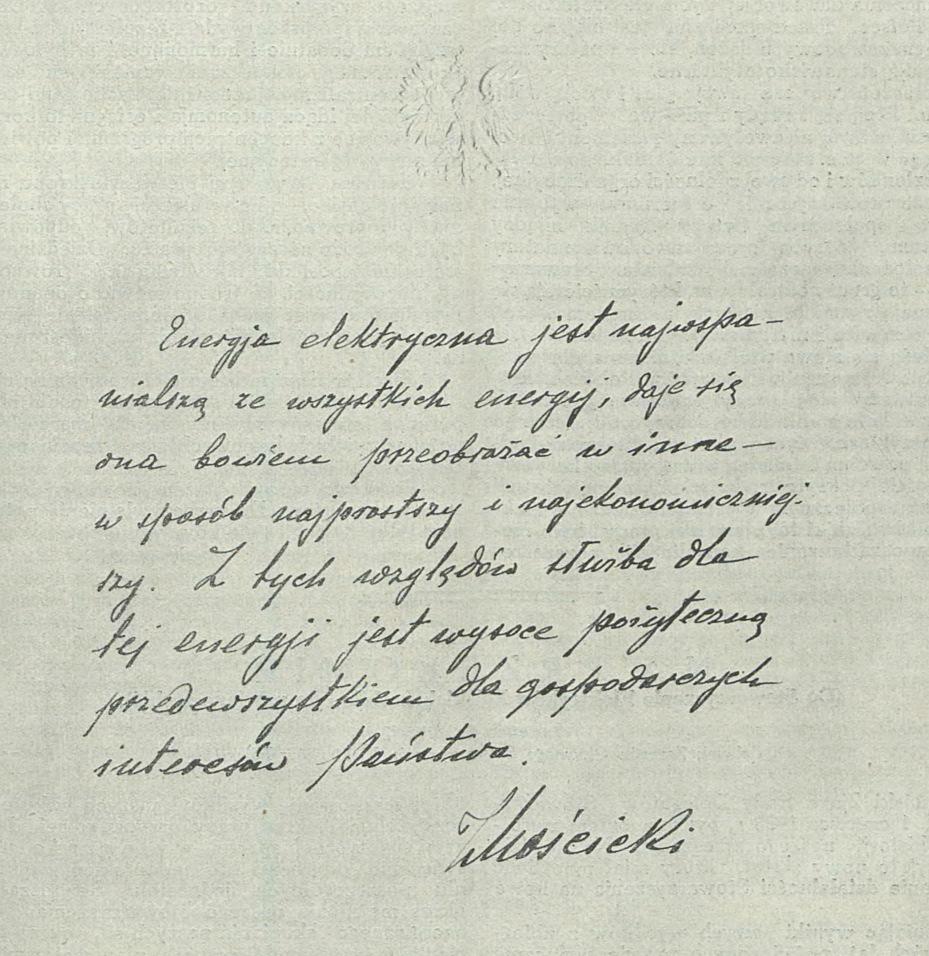 Energja elektryczna jest najwspa-
nialszą ze wszystkich energij, daje się
ona bowiem przeobrażać w inne —
w sposób najprostszy i najekonomiczniej-
szy. Z tych względów służba dla
tej energji jest wysoce pożyteczną
przedewszystkiem dla gospodarczych
interesów Państwa.
IMościcki